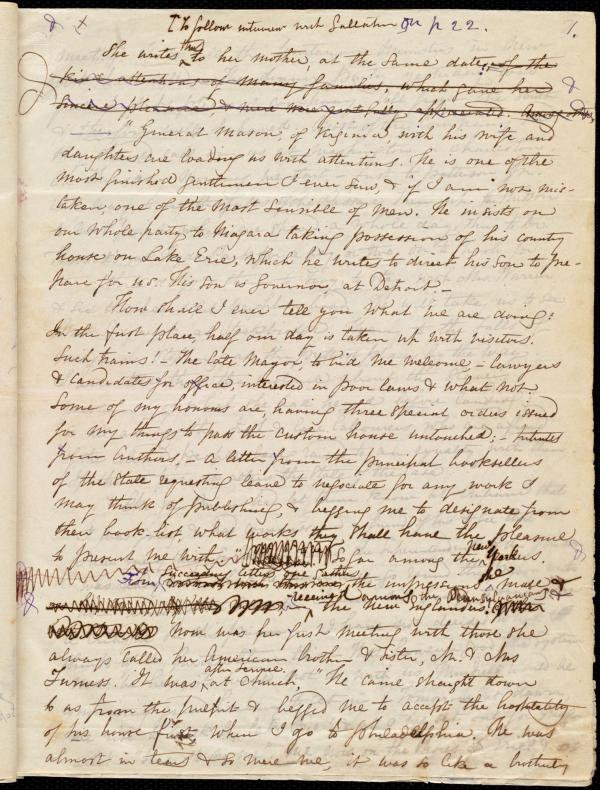 To follow interview with Gallatin on p 22. 1.
She writes thus to her mother, at the same date, of the
kind attentions of many families, which gave her &
sincere pleasure, & were most gratefully appreciated.
"General Mason, of Virginia with his wife and
daughters are loading us with attentions. He is one of the
most finished gentlemen I ever saw, & if I am not mis-
taken, one of the most sensible of men. He insists on
our whole party, to Niagara taking possession of his country
house on Lake Erie, which he writes to direct his son to pre-
pare for us. His son is Governor at Detroit –
How shall I ever tell you what we are doing!
In the first place, half our day is taken up with visitors.
Such trains! – the late Mayor, to bid me welcome, – lawyers
& candidates for office, interested in poor laws & what not
Some of my honours are, having three special orders issued
for my things to pass the custom house untouched; – tributes
from authors, – a letter from the principal booksellers
of the State requesting leave to negociate for any work I
may think of publishing, & begging me to designate from
their book list, what works they shall have the pleasure
to present me with." So far among the New Yorkers.
From succeeding letters one gathers the impressions she made &
received among the Pennsylvanians & the New Englanders.
Now was her first meeting with those she
always called her American brother & sister, Mr. & Mrs
Furness. It was after service, at church. "He came straight down
to us from the pulpit & begged me to accept the hospitality
of his house first when I go to Philadelphia. He was
almost in tears & so were we, it was so like a brotherly